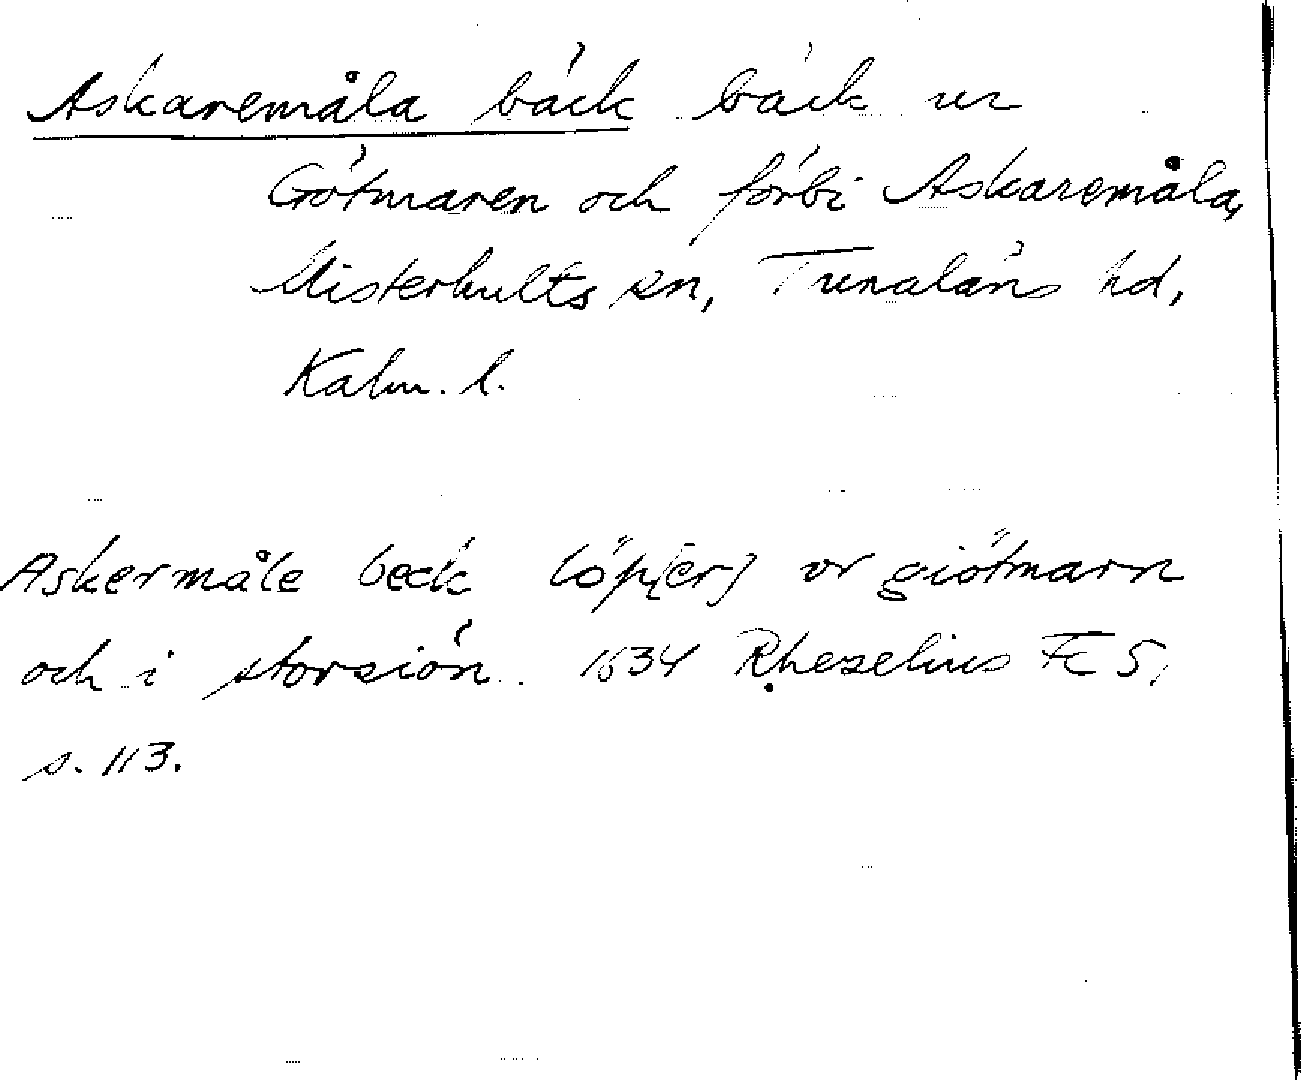 Askaremåla bäck bäck ur
Götmaren och förbi Askaremåla,
Misterhults sn, Tunaläns hd,
Kalm. l.
Askermåle beck löp[er] vr giötmarn
och i storsiön. 1634 Rhezelius Fc 5,
s. 113.